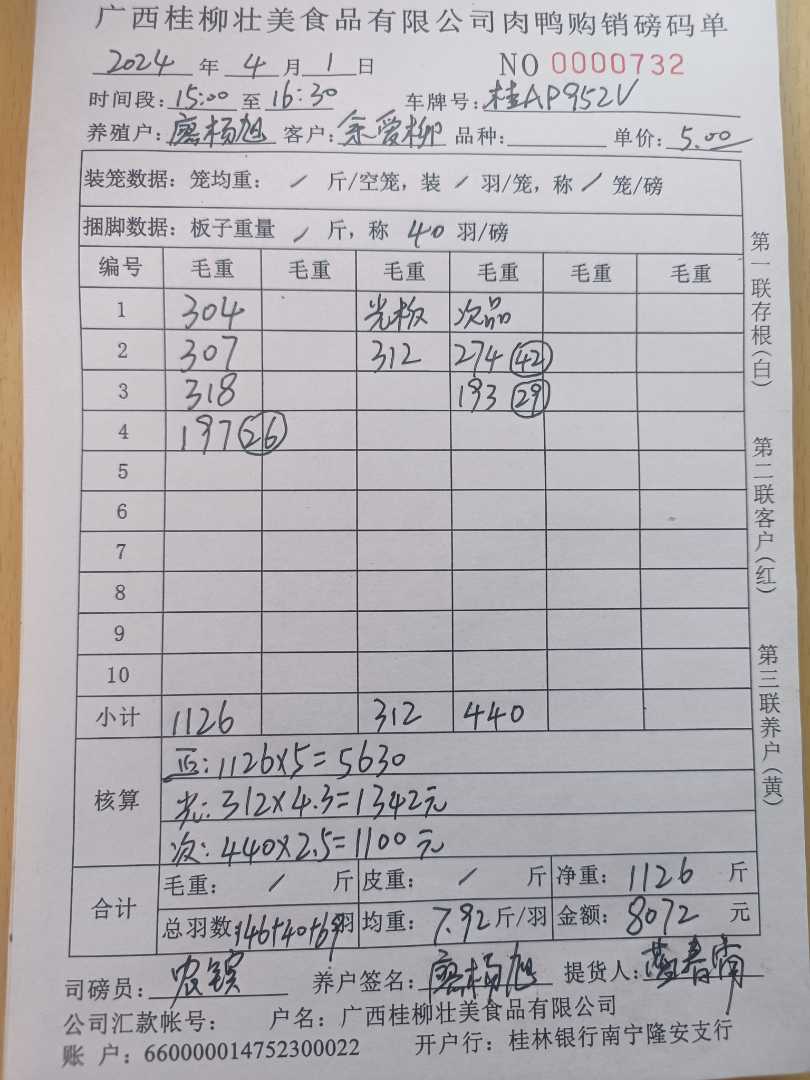 广西桂柳壮美食品有限公司肉鸭购销磅码单
2024 年 4 月 1 日 NO 0000732
时间段: 15:00 至 16:30 车牌号: 桂AP952V
养殖户: 廖杨旭 客户: 余爱柳 品种: 单价: 5.00
装笼数据: 笼均重: / 斤/空笼, 装 / 羽/笼, 称 / 笼/磅
捆脚数据: 板子重量 / 斤, 称 40 羽/磅
编号 毛重 毛重 毛重 毛重 毛重 毛重
1 304 光板 次品
2 307 312 274 42
3 318 193 29
4 197 26
5
6
7
8
9
10
小计 1126 312 440
核算 正: 1126×5=5630
光: 312×4.3=1342元
次: 440×2.5=1100元
合计 毛重: / 斤 皮重: / 斤 净重: 1126 斤
总羽数: 146+40+69羽 均重: 7.92斤/羽 金额: 8072 元
司磅员: 农 养户签名: 廖杨旭 提货人: 春
公司汇款帐号: 户名: 广西桂柳壮美食品有限公司
账 户: 660000014752300022 开户行: 桂林银行南宁隆安支行
第一联存根(白) 第二联客户(红) 第三联养户(黄)